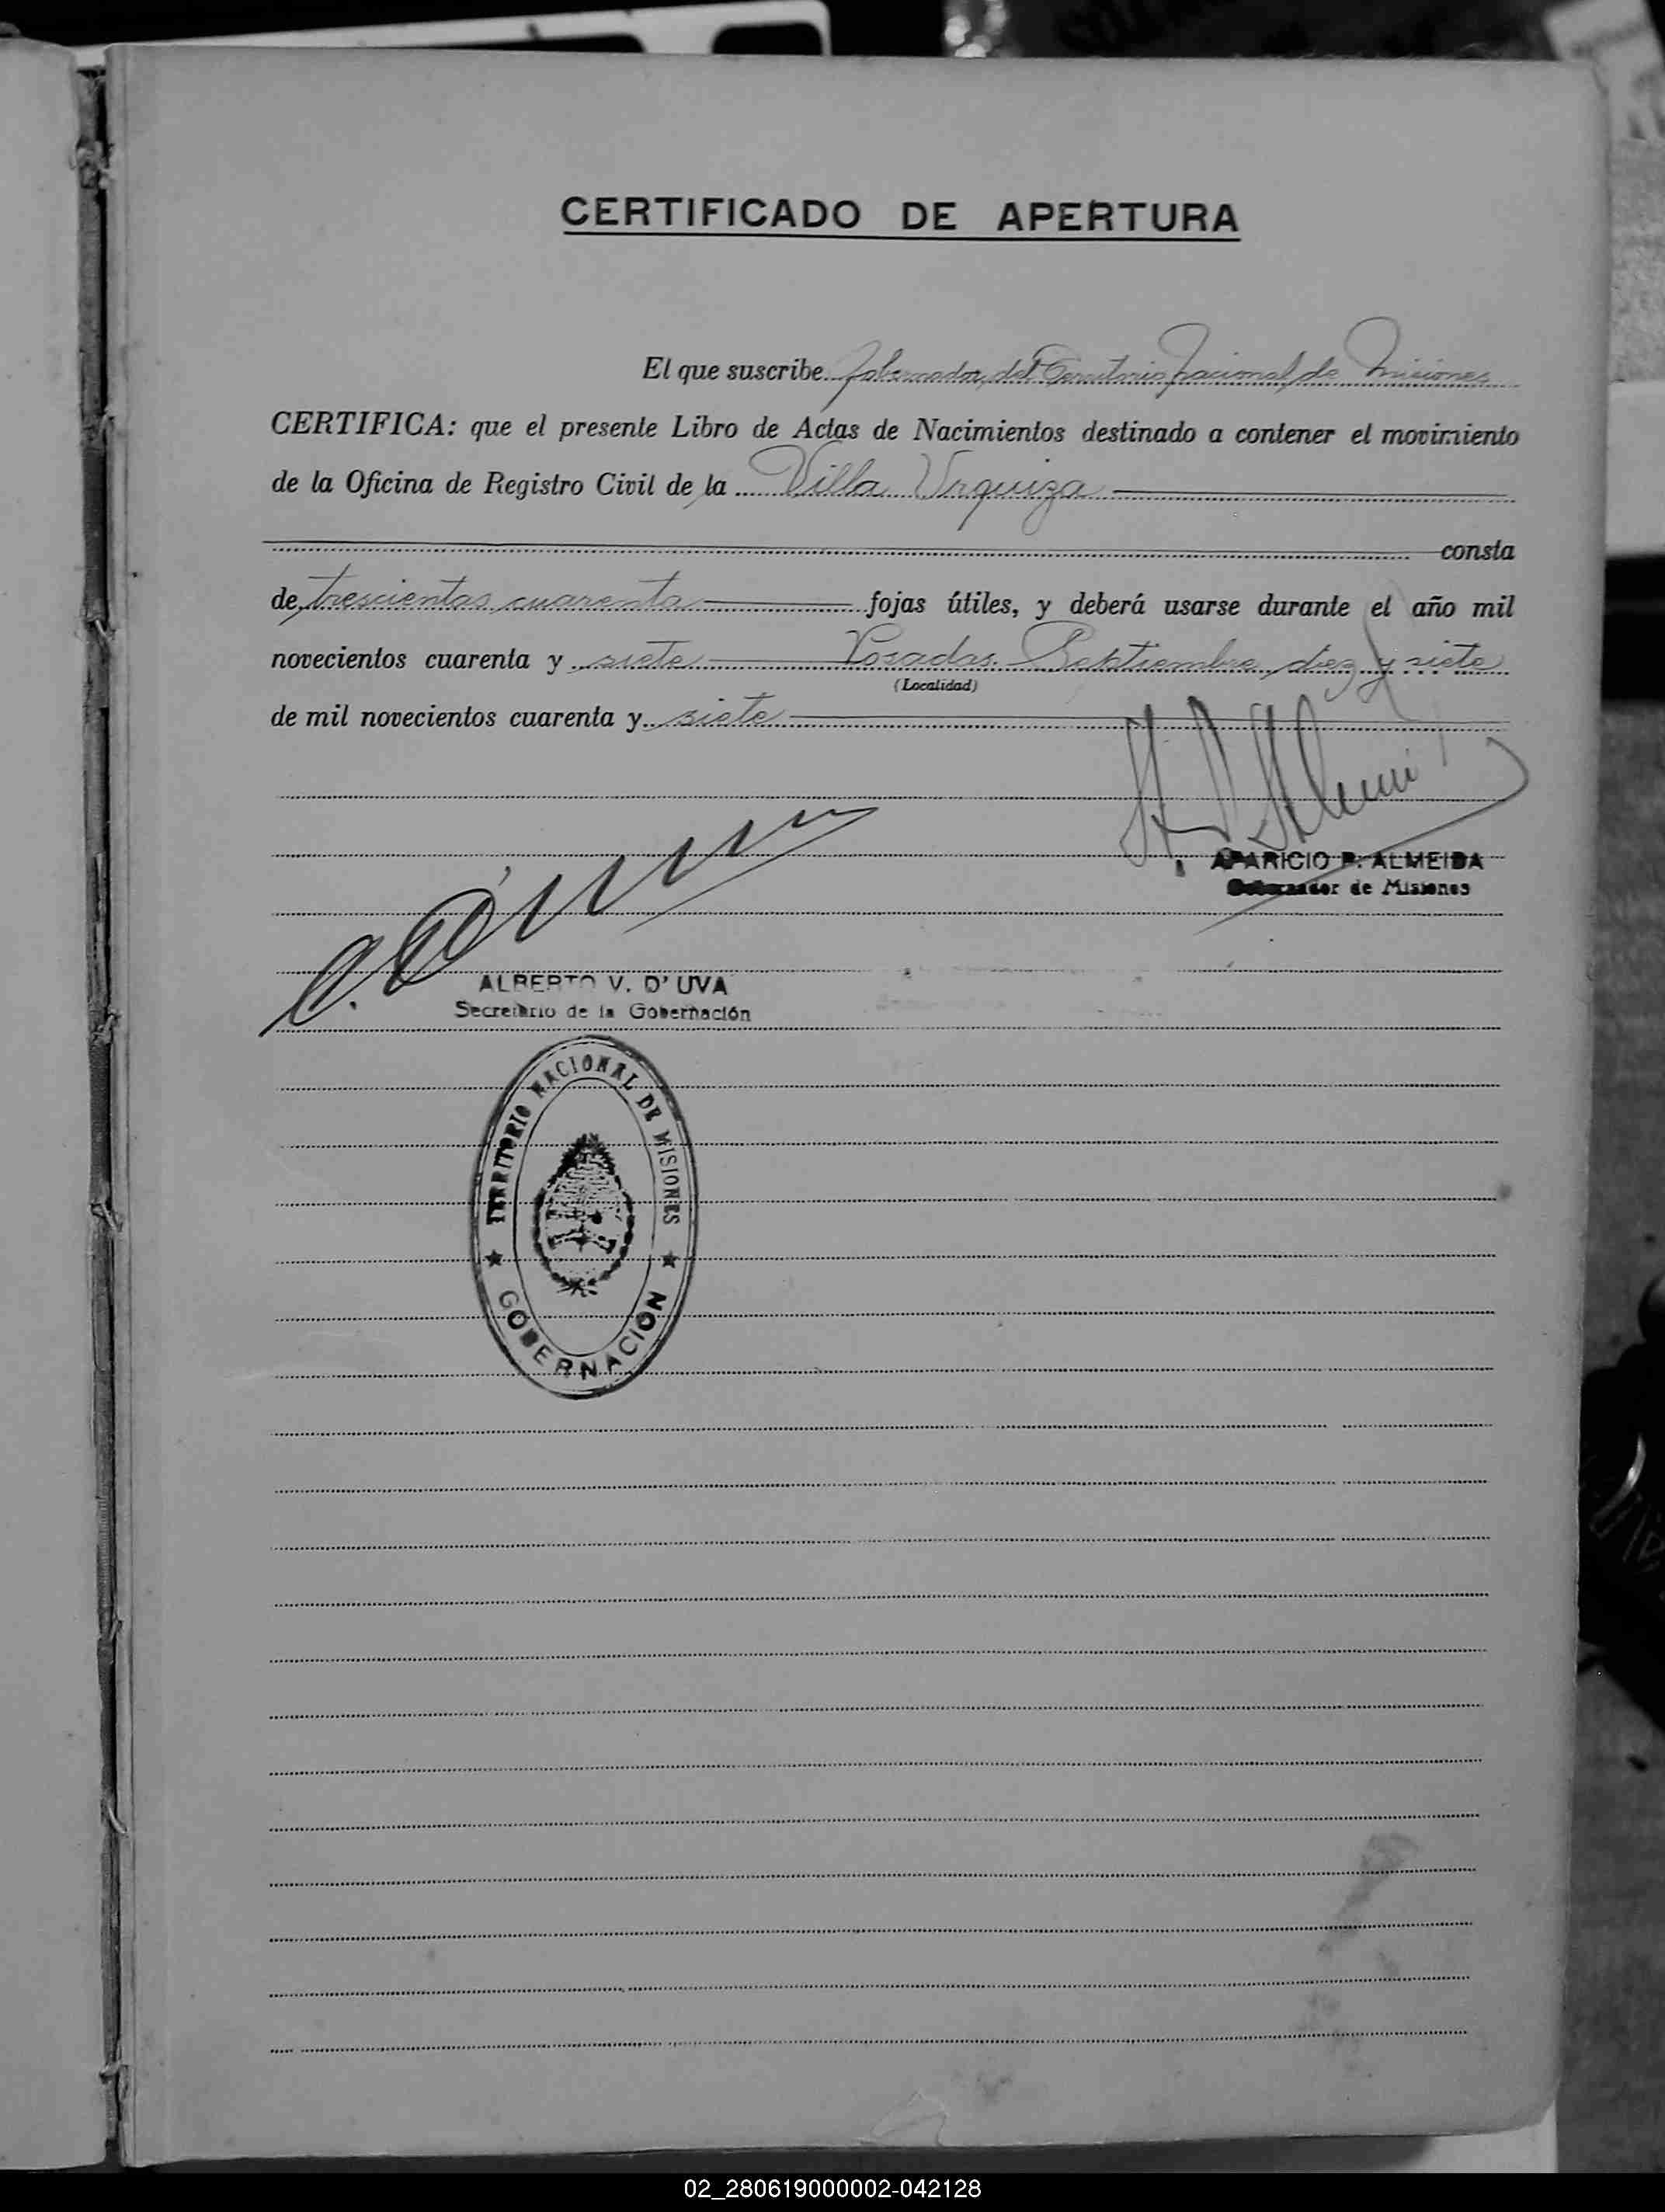 CERTIFICADO DE APERTURA
El que suscribe Gobernador del Territorio Nacional de Misiones
CERTIFICA: que el presente Libro de Actas de Nacimientos destinado a contener el movimiento
de la Oficina de Registro Civil de la Villa Urquiza
consta
de trescientas cuarenta fojas útiles, y deberá usarse durante el año mil
novecientos cuarenta y siete Posadas. Septiembre diez y siete
(Localidad)
de mil novecientos cuarenta y siete
APARICIO P. ALMEIDA
Gobernador de Misiones
ALBERTO V. D'UVA
Secretario de la Gobernación
TERRITORIO NACIONAL DE MISIONES
GOBERNACION
02_280619000002-042128